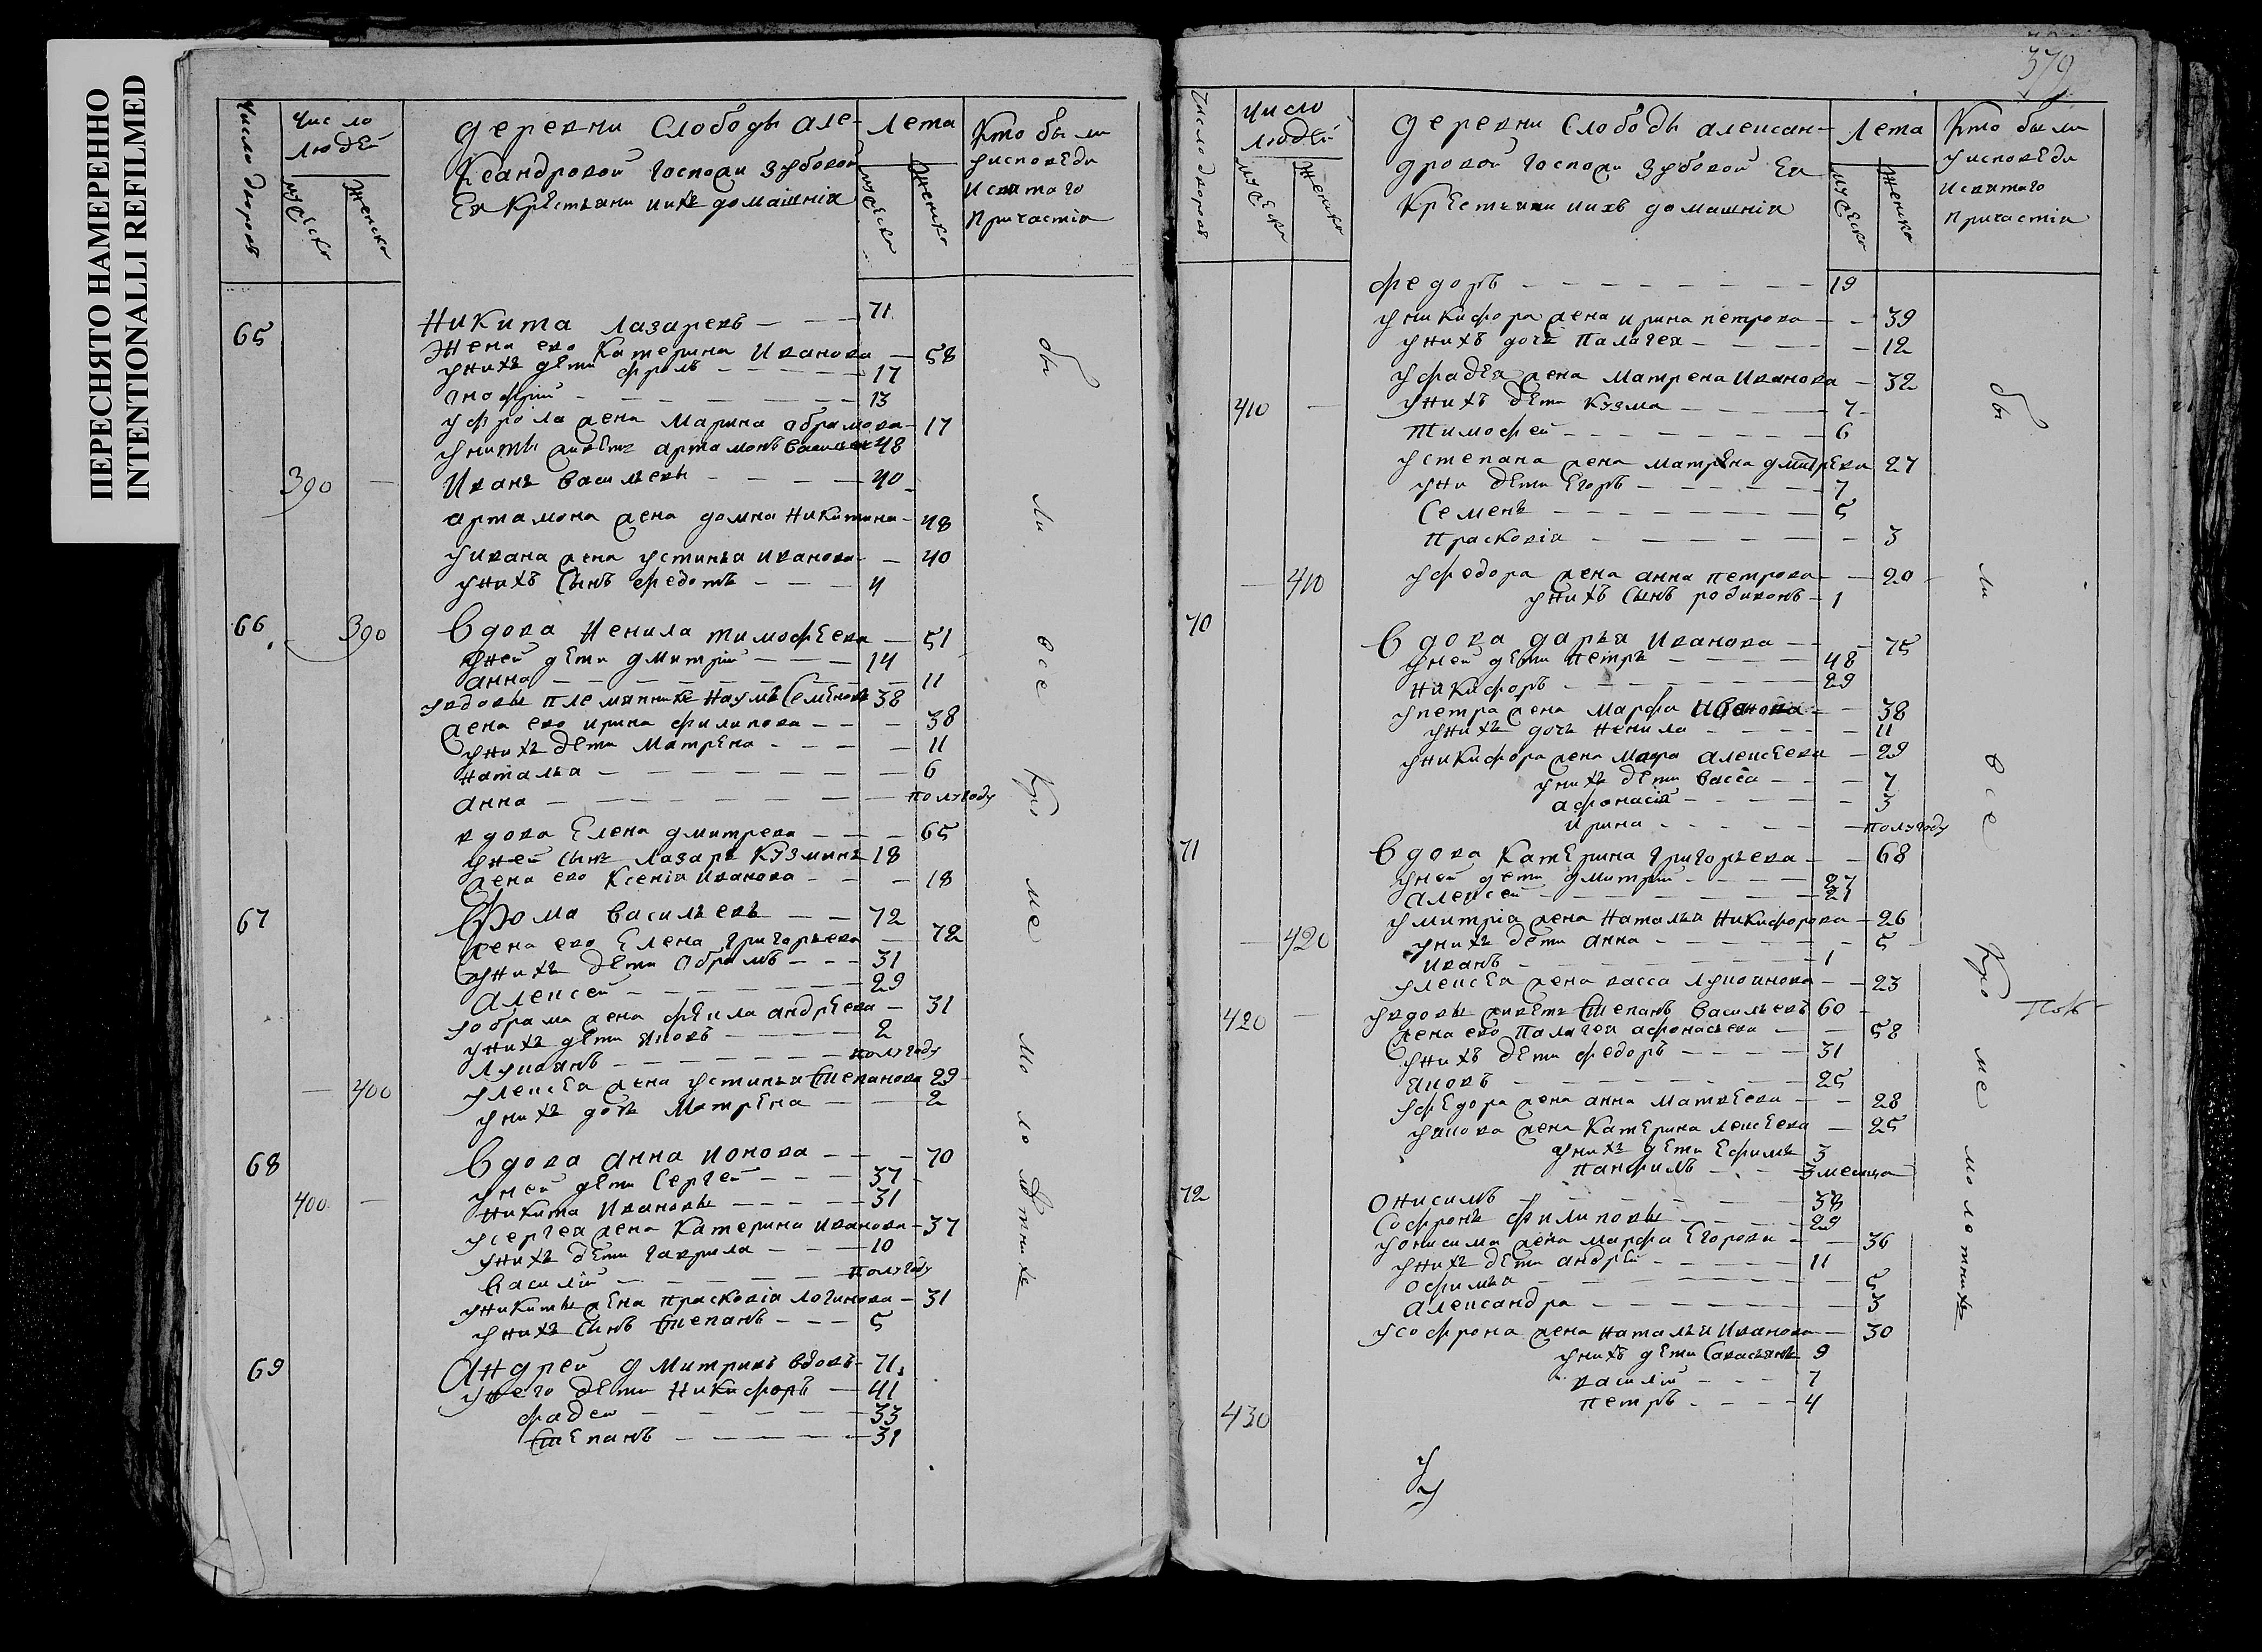 ПЕРЕСНЯТО НАМЕРЕННО
INTENTIONALLI REFILMED
379
Число дворовъ
Число людей
мужеска
женска
деревни Слободы Але-
ксандровой госпожи Зубовой
Ея крестьяни и ихъ домашнія
Лета
мужеска
женска
Кто были
у исповеди
и святаго
причастія
65 Никита Лазаревъ 71
Жена ево Катерина Иванова 58
у нихъ дети Фролъ 17
Анофрій 13
у Фрола жена Марина Абрамова 17
у Никиты живетъ Артамонъ Васильевъ 48
390 Иванъ Васильевы 40
Артамона жена Домна Никитина 48
у Ивана жена Устинья Иванова 40
у нихъ сынъ Федотъ 4
66 390 Вдова Ненила Тимофеева 51
у ней дети Дмитрій 14
Анна 11
у вдовы племянникъ Наумъ Семеновъ 38
жена ево Ирина Филипова 38
у нихъ дети Матрена 11
Наталья 6
Анна полугоду
вдова Елена Дмитрева 65
у ней сынъ Лазарь Кузминъ 18
жена ево Ксенія Иванова 18
67 Фома Васильевъ 72
жена ево Елена Григорьева 72
у нихъ дети Обрамъ 31
Алексей 29
у Обрама жена Феила Андреева 31
у нихъ дети Яковъ 2
Лукоянъ полугоду
400 у Алексея жена Устинья Степанова 29
у нихъ дочь Матрена 2
68 Вдова Анна Ионова 70
у ней дети Сергей 37
400 Никита Ивановы 31
у Сергея жена Катерина Иванова 37
у нихъ дети Гаврила 10
Василій полугоду
у Никиты жена Прасковія Логинова 31
у нихъ сынъ Степанъ 5
69 Андрей Дмитривъ вдовъ 71
у него дети Никифоръ 41
Фадей 33
Степанъ 31
бы ли все кро ме мо ло дтнихъ
Число дворовъ
Число людей
мужеска
женска
деревни Слободы Алексан-
дровой госпожи Зубовой Ея
крестьяни и ихъ домашнія
Лета
мужеска
женска
Кто были
у исповеди
и святаго
причастія
Федоръ 19
у Никифора жена Ирина Петрова 39
у нихъ дочь Палагея 12
у Фадея жена Матрена Иванова 32
410 у нихъ дети Кузма 7
Тимофей 6
у Степана жена Матрена Дмитрева 27
у ни дети Егоръ 7
Семенъ 5
Прасковія 3
410 у Федора жена Анна Петрова 20
у нихъ сынъ Родивонъ 1
70 Вдова Дарья Иванова 75
у ней дети Петръ 48
Никифоръ 29
у Петра жена Марфа Иванова 38
у нихъ дочь Ненила 11
у Никифора жена Мавра Алексеева 29
у нихъ дети Васса 7
Афонасія 3
Ирина полугоду
71 Вдова Катерина Григорьева 68
у ней дети Дмитрій 27
Алексей 21
у Митрія жена Наталья Никифорова 26
420 у нихъ дети Анна 5
Иванъ 1
у Алексея жена Васса Лукоянова 23
420 у вдовы живетъ Степанъ Васильевъ 60
жена ево Палагея Афонасьева 58
у нихъ дети Федоръ 31
Яковъ 25
у Федора жена Анна Матвеева 28
у Якова жена Катерина Алексеева 25
у нихъ дети Ефимъ 3
Панфилъ 3 месица
72 Онисимъ 38
Софронъ Филиповы 29
у Онисима жена Марфа Егорова 36
у нихъ дети Андрей 11
Офимья 5
Александра 3
у Софрона жена Наталья Иванова 30
у нихъ дети Савасьянъ 9
Василій 7
430 Петръ 4
бы ли все кро ме мо ло тнихъ